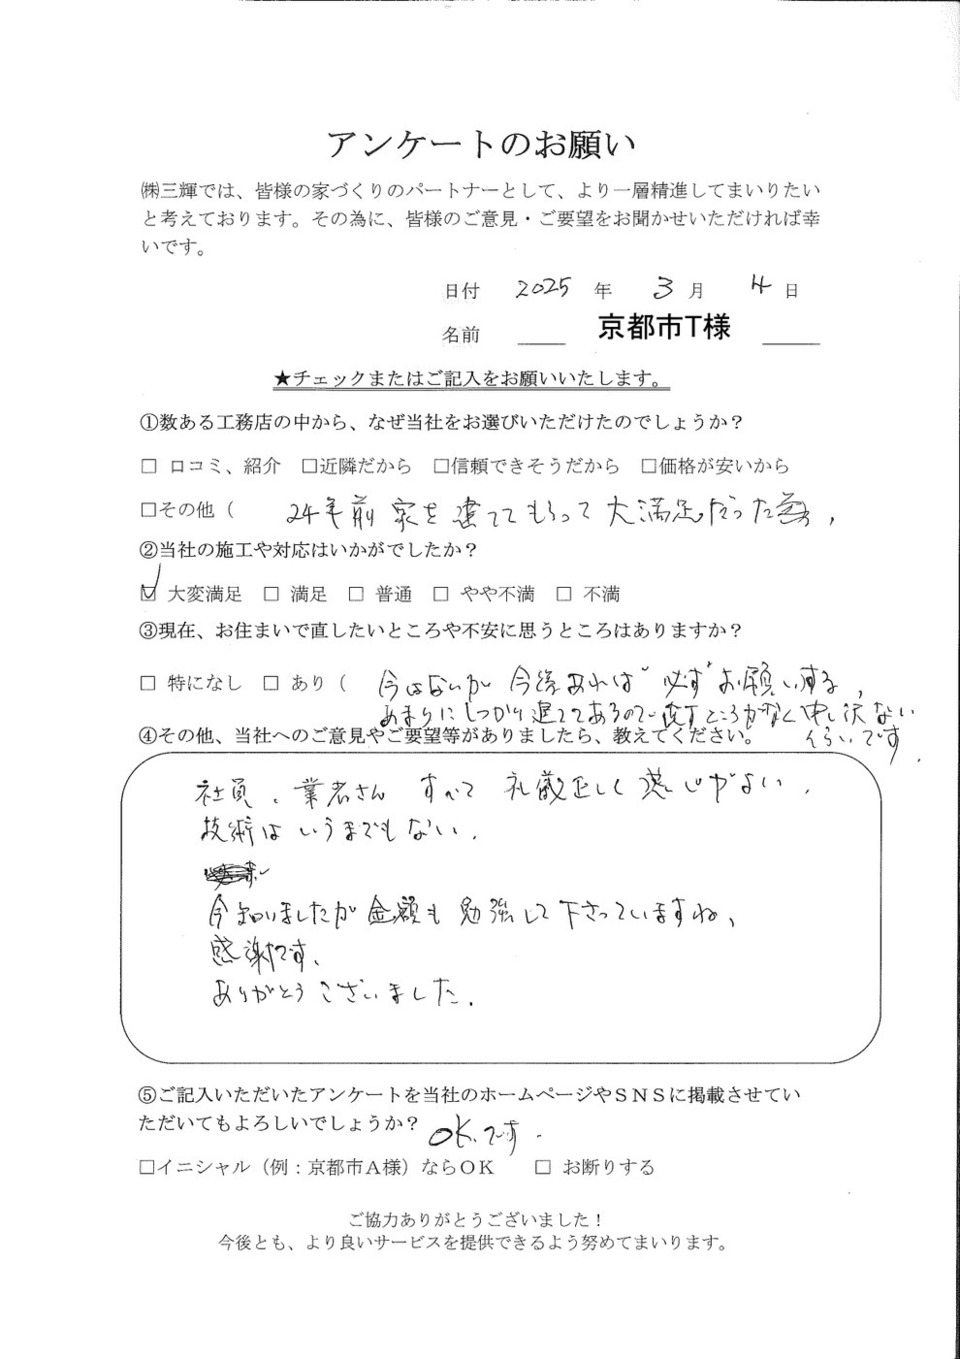 アンケートのお願い
㈱三輝では、皆様の家づくりのパートナーとして、より一層精進してまいりたい
と考えております。その為に、皆様のご意見・ご要望をお聞かせいただければ幸
いです。
日付 2025 年 3 月 4 日
名前 京都市T様
★チェックまたはご記入をお願いいたします。
①数ある工務店の中から、なぜ当社をお選びいただけたのでしょうか？
□ 口コミ、紹介 □近隣だから □信頼できそうだから □価格が安いから
□その他（ 24年前 家を建ててもらって大満足だった為、
②当社の施工や対応はいかがでしたか？
☑ 大変満足 □ 満足 □ 普通 □ やや不満 □ 不満
③現在、お住まいで直したいところや不安に思うところはありますか？
□ 特になし □ あり（ 今はないが 今後あれば 必ず お願いする、
あまりにしっかり建ててあるので直すところがなく申し訳ない
くらいです.
④その他、当社へのご意見やご要望等がありましたら、教えてください。
社員、業者さん すべて 礼儀正しく 感じがいい.
技術はいうまでもない.
今知りましたが 金額も 勉強して下さっていますね、
感謝です、
ありがとうございました.
⑤ご記入いただいたアンケートを当社のホームページやＳＮＳに掲載させてい
ただいてもよろしいでしょうか？ OKです.
□イニシャル（例：京都市Ａ様）ならＯＫ □ お断りする
ご協力ありがとうございました！
今後とも、より良いサービスを提供できるよう努めてまいります。